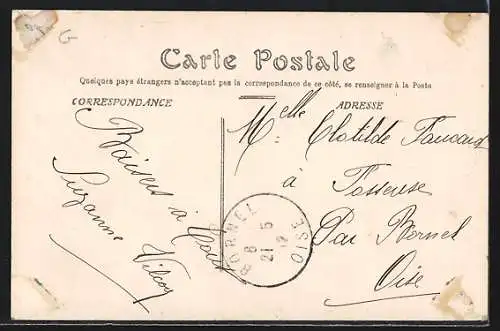 G
Carte Postale
Quelques pays étrangers n'acceptant pas la correspondance de ce côté, se renseigner à la Poste
CORRESPONDANCE
ADRESSE
Baisers à tous
Suzanne
Melle Clotilde
à
Fosseuse
Par Bornel
Oise
BORNEL
8
21 5
12
OISE